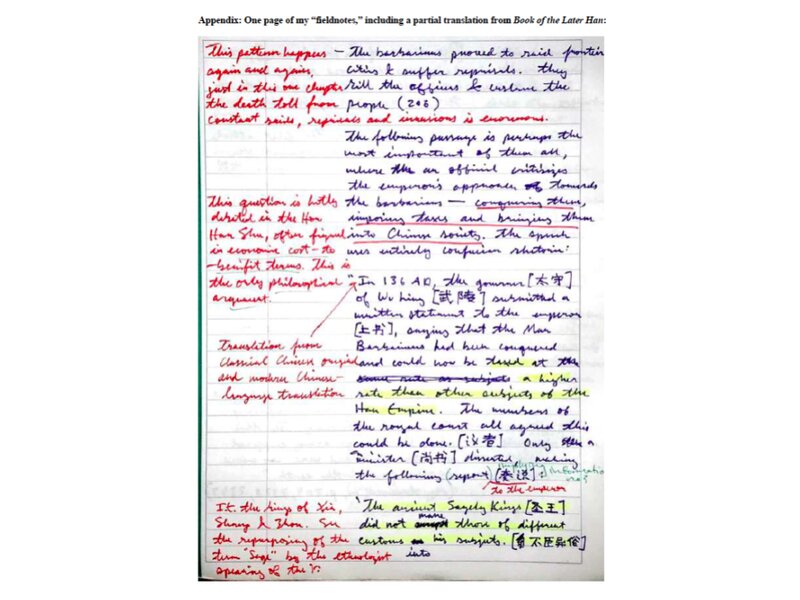 Appendix: One page of my “fieldnotes,” including a partial translation from Book of the Later Han:
This pattern happens –
again and again,
just in this one chapter
the death toll from
constant raids, reprisals and invasions is enormous.
The barbarians proceed to raid frontier
cities & suffer reprisals. They
kill the officers & enslave the
people (206)
The following passage is perhaps the
most important of them all,
where an official criticizes
the emperor's approach towards
the barbarians — conquering them,
imposing taxes and bringing them
into Chinese society. The speech
uses entirely confucian rhetoric:
This question is hotly
debated in the Hou
Han Shu, often
in economic cost-to
-benefit terms. This is
the only philosophical
argument.
"In 136 AD, the governor [太守]
of Wu Ling [武陵] submitted a
written statement to the emperor
[上书], saying that the Man
Barbarians had been conquered
and could now be taxed at the
same rate as subjects a higher
rate than other subjects of the
Han Empire. The members of
the royal court all agreed this
could be done. [议者] Only a
minister [尚书] dissented, making
the following (report) [奏说]:
implying
to the emperor
Translation from
Classical Chinese original
and modern Chinese-
language translation
"The ancient Sagely Kings [圣王]
did not make those of different
customs his subjects. [不臣异俗]
into
I.e. the kings of Xia,
Shang & Zhou.
the repurposing of the
term "Sage" by the ethnologist
speaking of the Yi